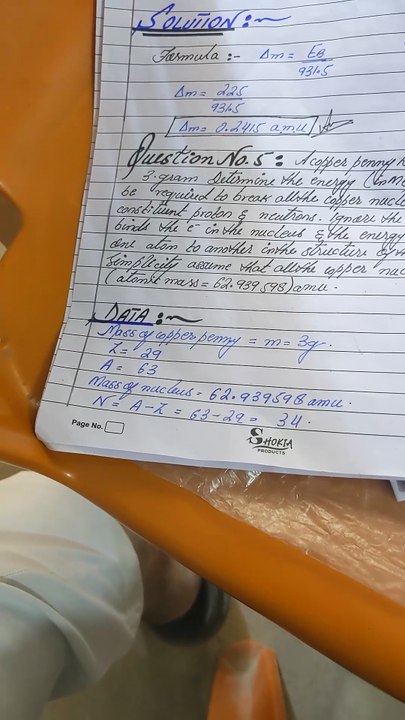 SOLUTION :~
Formula :- Δm = EB
931.5
Δm = 225
931.5
Δm = 0.2415 amu
Question No.5 : A copper penny h
3. gram Determine the energy (in Me
be required to break all the copper nucle
constituent proton & neutrons. Ignore the
binds the e- in the nucleus & the energy
one atom to another in the structure of th
Simplicity assume that all the copper nuc
(atomic mass = 62.939598) amu.
DATA :~
Mass of copper penny = m = 3g.
Z = 29
A = 63
Mass of nucleus = 62.939598 amu.
N = A-Z = 63-29 = 34.
Page No.
SHOKIA
PRODUCTS